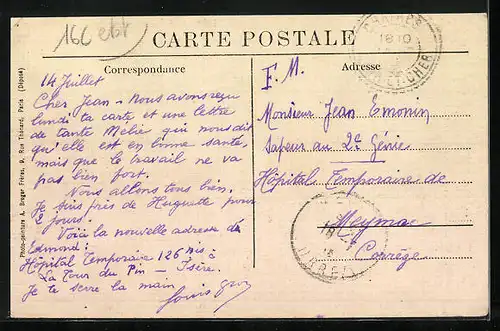 CARTE POSTALE
Correspondance
Adresse
14 Juillet
Cher Jean - Nous avons reçu
lundi ta carte et une lettre
de tante Mélie qui nous dit
qu'elle est en bonne santé,
mais que le travail ne va
pas bien fort.
Nous allons tous bien.
Je suis près de Huguette pour
2 jours.
Voici la nouvelle adresse de
Edmond:
Hôpital Temporaire 126 bis à
La Tour du Pin - Isère.
Je te serre la main
Louis
F. M.
Monsieur Jean Emonin
Sapeur au 2e Génie
Hôpital Temporaire de
Meymac
Corrèze
18 10
CHER
Photo-peinture A. Breger Frères, 9, Rue Thénard, Paris (Déposé)